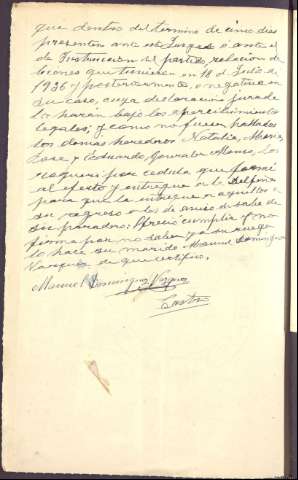 que dentro del termino de cinco dias
presenten ante este Juzgado o ante el
de Instruccion del partido, relacion de
bienes que tuvieron en 18 de Julio de
1936 y posteriormente, o negativa en
su caso, cuya declaracion jurada
la haran bajo los apercibimientos
legales; y como no fuesen hallados
los demas herederos Natalia, Maria,
Jose y Eduardo Gonzalez Alonso, los
requeri por cedula que formé
al efecto y entregue a la Delfina
para que la entregue a aquellos a
su regreso a los de enviso de sabe
su paradero; Ofrecio cumplir y no
firma por no saber y a su ruego
lo hace su marido Manuel Dominguez
Vazquez de que certifico.
Manuel Dominguez Vazquez
Castro